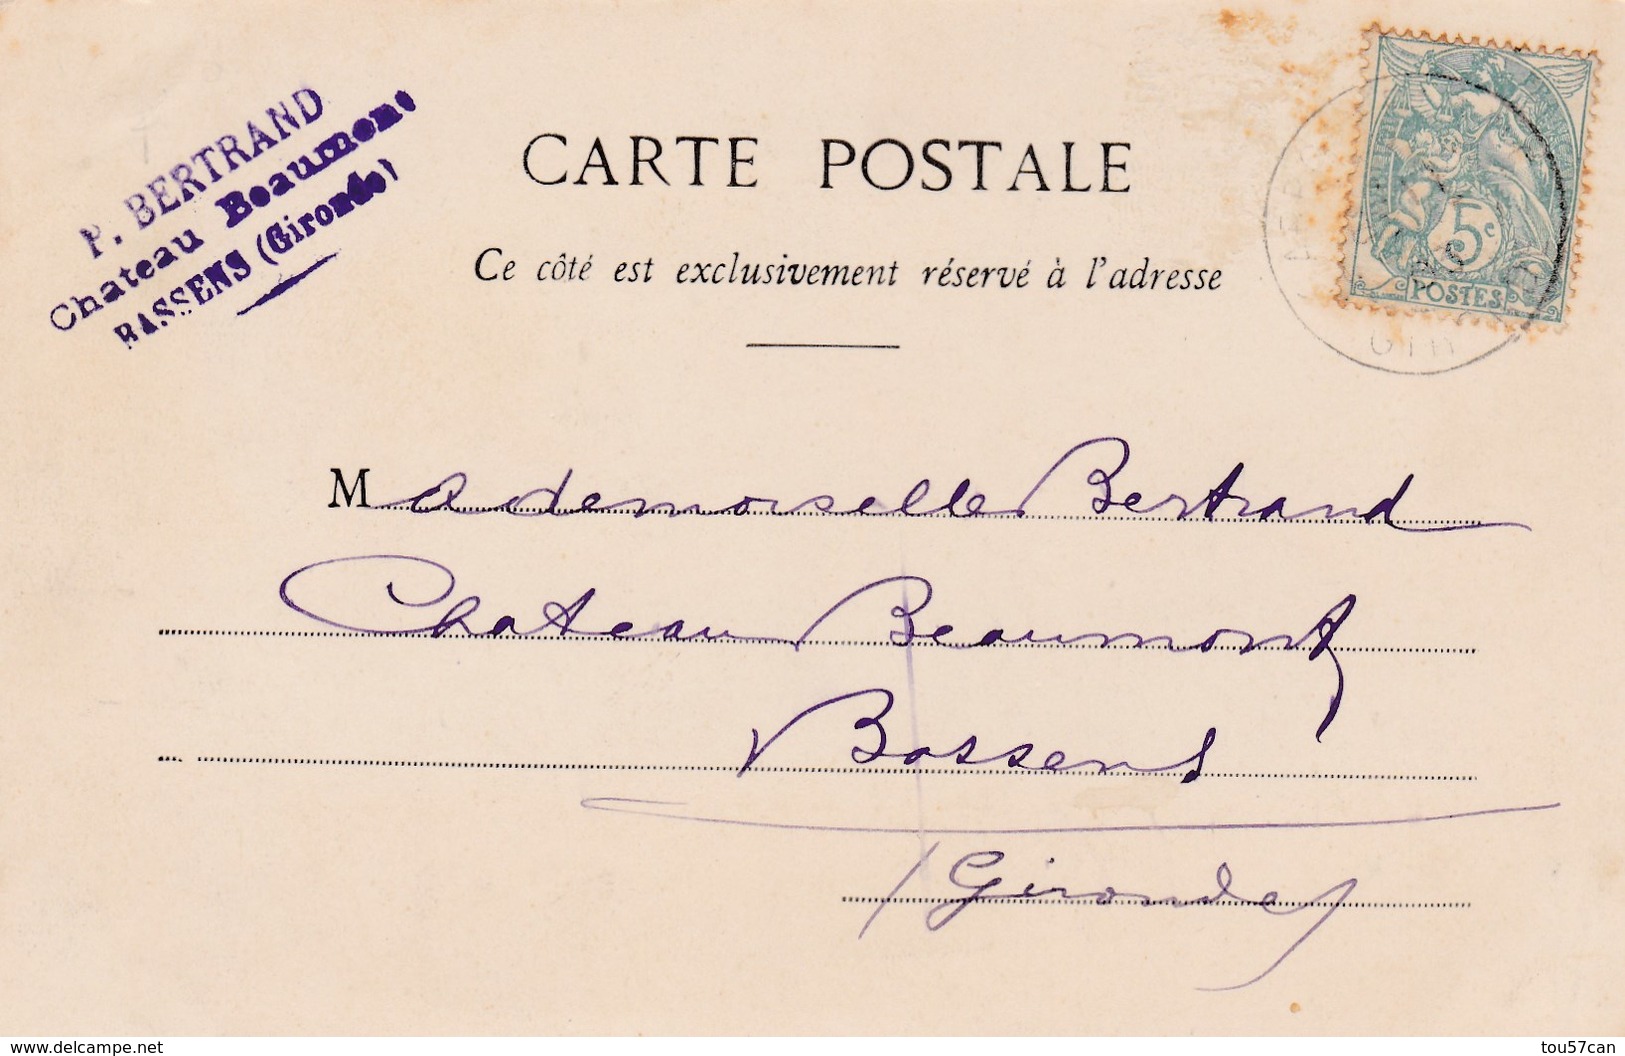 P. BERTRAND
Chateau Beaumont
BASSENS (Gironde)
CARTE POSTALE
Ce côté est exclusivement réservé à l'adresse
5c
POSTES
GIR
Mademoiselle Bertrand
Chateau Beaumont
Bassens
(Gironde)
www.delcampe.net
tou57can